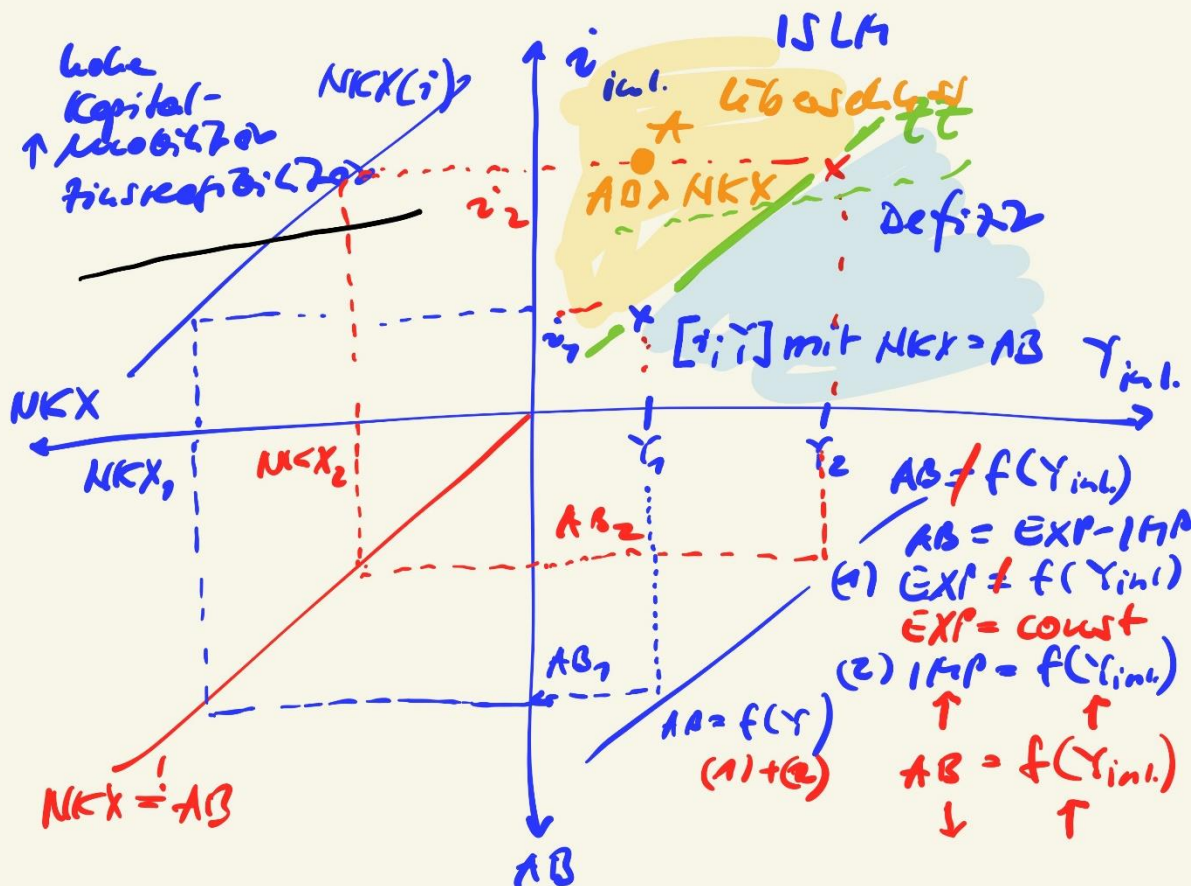 ISLM
hohe
Kapital-
↑ mobilität
Zinsreagibilität
NKX(i)
i inl.
Überschuss
ZZ
A
AB > NKX
i₂
Defizit
i₁
[i;Y] mit NKX = AB
Y inl.
NKX
NKX₁
NKX₂
Y₁
Y₂
AB = f(Y inl.)
AB = EXP - IMP
AB₂
(1) EXP ≠ f(Y inl)
EXP = const
(2) IMP = f(Y inl.)
↑ ↑
AB₁
AB = f(Y)
(1)+(2)
AB = f(Y inl.)
↓ ↑
NKX = AB
AB